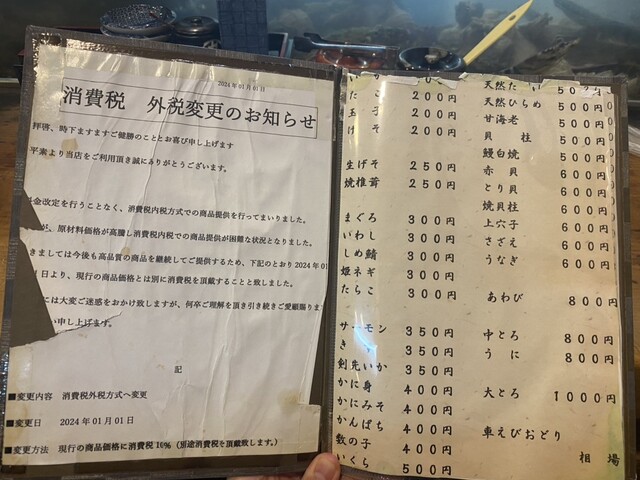 2024年01月01日
消費税 外税変更のお知らせ
拝啓、時下ますますご健勝のこととお喜び申し上げます
平素より当店をご利用頂き誠にありがとうございます。
金改定を行うことなく、消費税内税方式での商品提供を行ってまいりました。
が、原材料価格が高騰し消費税内税での商品提供が困難な状況となりました。
きましては今後も高品質の商品を継続してご提供するため、下記のとおり2024年01
1日より、現行の商品価格とは別に消費税を頂戴することと致しました。
には大変ご迷惑をおかけ致しますが、何卒ご理解を頂き引き続きご愛顧賜りま
い申し上げます。
記
■変更内容 消費税外税方式へ変更
■変更日 2024年01月01日
■変更方法 現行の商品価格に消費税10%(別途消費税を頂戴致します。)
たこ 200円
玉子 200円
げそ 200円
生げそ 250円
焼椎茸 250円
まぐろ 300円
いわし 300円
しめ鯖 300円
姫ネギ 300円
たらこ 300円
サーモン 350円
き 350円
剣先いか 350円
かに身 400円
かにみそ 400円
かんぱち 400円
数の子 400円
いくら 500円
天然たい 500円
天然ひらめ 500円
甘海老 500円
貝柱 500円
鰻白焼 500円
赤貝 600円
とり貝 600円
焼貝柱 600円
上穴子 600円
さざえ 600円
うなぎ 600円
あわび 800円
中とろ 800円
うに 800円
大とろ 1000円
車えびおどり
相場